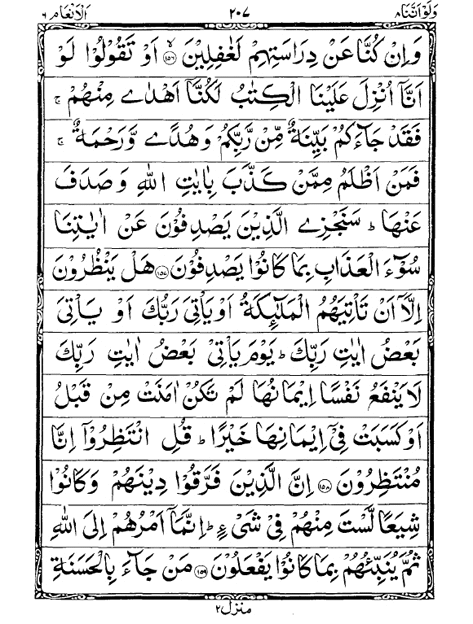 ولواننا ٨ ٢٠٧ الانعام ٦
وَاِنْ كُنَّا عَنْ دِرَاسَتِهِمْ لَغٰفِلِيْنَ ﴿١٥٦﴾ اَوْ تَقُوْلُوْا لَوْ
اَنَّاۤ اُنْزِلَ عَلَيْنَا الْكِتٰبُ لَكُنَّاۤ اَهْدٰى مِنْهُمْ ۚ
فَقَدْ جَآءَكُمْ بَيِّنَةٌ مِّنْ رَّبِّكُمْ وَهُدًى وَّرَحْمَةٌ ۚ
فَمَنْ اَظْلَمُ مِمَّنْ كَذَّبَ بِاٰيٰتِ اللّٰهِ وَصَدَفَ
عَنْهَا ؕ سَنَجْزِى الَّذِيْنَ يَصْدِفُوْنَ عَنْ اٰيٰتِنَا
سُوْٓءَ الْعَذَابِ بِمَا كَانُوْا يَصْدِفُوْنَ ﴿١٥٧﴾ هَلْ يَنْظُرُوْنَ
اِلَّاۤ اَنْ تَاْتِيَهُمُ الْمَلٰٓئِكَةُ اَوْ يَاْتِىَ رَبُّكَ اَوْ يَاْتِىَ
بَعْضُ اٰيٰتِ رَبِّكَ ؕ يَوْمَ يَاْتِىْ بَعْضُ اٰيٰتِ رَبِّكَ
لَا يَنْفَعُ نَفْسًا اِيْمَانُهَا لَمْ تَكُنْ اٰمَنَتْ مِنْ قَبْلُ
اَوْ كَسَبَتْ فِىْۤ اِيْمَانِهَا خَيْرًا ؕ قُلِ انْتَظِرُوْۤا اِنَّا
مُنْتَظِرُوْنَ ﴿١٥٨﴾ اِنَّ الَّذِيْنَ فَرَّقُوْا دِيْنَهُمْ وَكَانُوْا
شِيَعًا لَّسْتَ مِنْهُمْ فِىْ شَىْءٍ ؕ اِنَّمَاۤ اَمْرُهُمْ اِلَى اللّٰهِ
ثُمَّ يُنَبِّئُهُمْ بِمَا كَانُوْا يَفْعَلُوْنَ ﴿١٥٩﴾ مَنْ جَآءَ بِالْحَسَنَةِ
منزل ٢